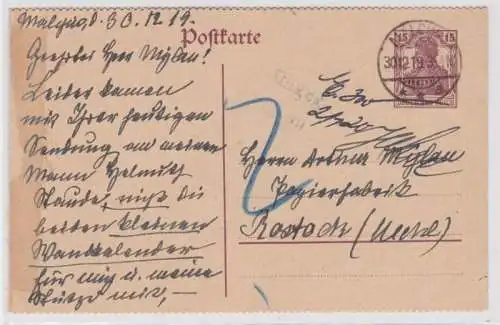 Malgau, d. 30.12.19.
Postkarte
Geehrter Herr Mylau!
Leider kamen
mit Ihrer heutigen
Sendung an meinen
Mann Helmuth
Staude, nicht die
beiden kleinen
Wandkalender
für mich u. meine
mit, —
15 15
30.12.19.
Herrn Arthur Mylau
Papierfabrik
Rostock (Meckl.)